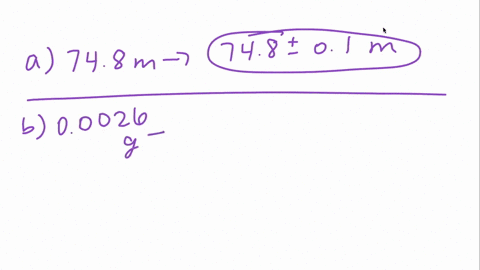 a) 74.8 m → 74.8 ± 0.1 m
b) 0.0026
g –